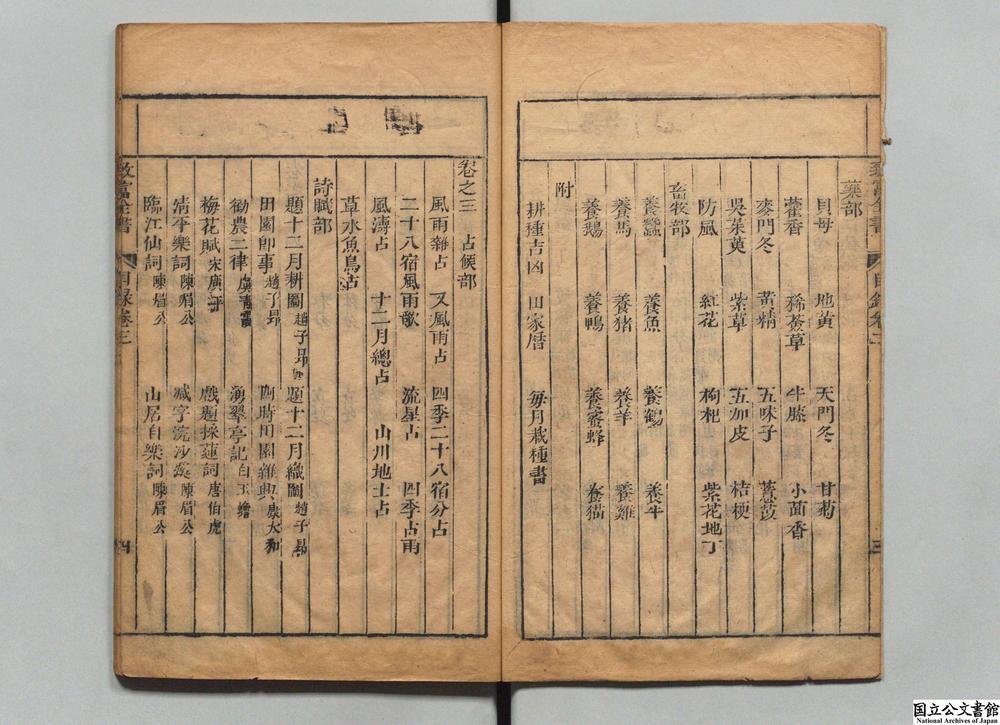 藥部
貝母 地黃 天門冬 甘菊
藿香 豨薟草 牛膝 小茴香
麥門冬 黃精 五味子 薏苡
吳茱萸 紫草 五加皮 桔梗
防風 紅花 枸杞 紫花地丁
畜牧部
養蠶 養魚 養鶴 養牛
養馬 養猪 養羊 養雞
養鵝 養鴨 養蜜蜂 養猫
附
耕種吉凶 田家曆 每月栽種書
卷之三 占候部
風雨雜占 又風雨占 四季二十八宿分占
二十八宿風雨歌 流星占 四季占雨
風濤占 十二月總占 山川地土占
草木魚鳥占
詩賦部
題十二月耕圖 趙子昂 題十二月織圖 趙子昂
田園即事 趙子昂 四時田園雜興 康大和
勸農二律 虞青霞 湧翠亭記 白玉蟾
梅花賦 宋廣平 戲題採蓮詞 唐伯虎
清平樂詞 陳眉公 減字浣沙溪 陳眉公
臨江仙詞 陳眉公 山居自樂詞 陳眉公
致富全書 目錄卷三 四
国立公文書館
National Archives of Japan